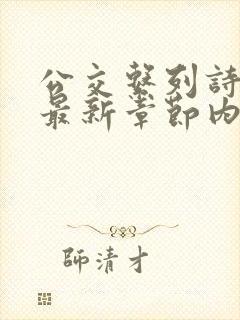 公交繫列詩
最新章節內
師清才